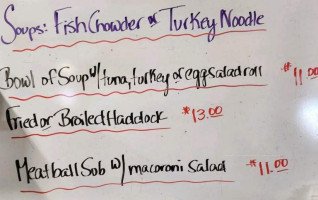 Soups: Fish Chowder or Turkey Noodle
Bowl of Soup w/ tuna, turkey or egg salad roll $11.00
Fried or Broiled Haddock $13.00
Meatball Sob w/ macaroni Salad $11.00